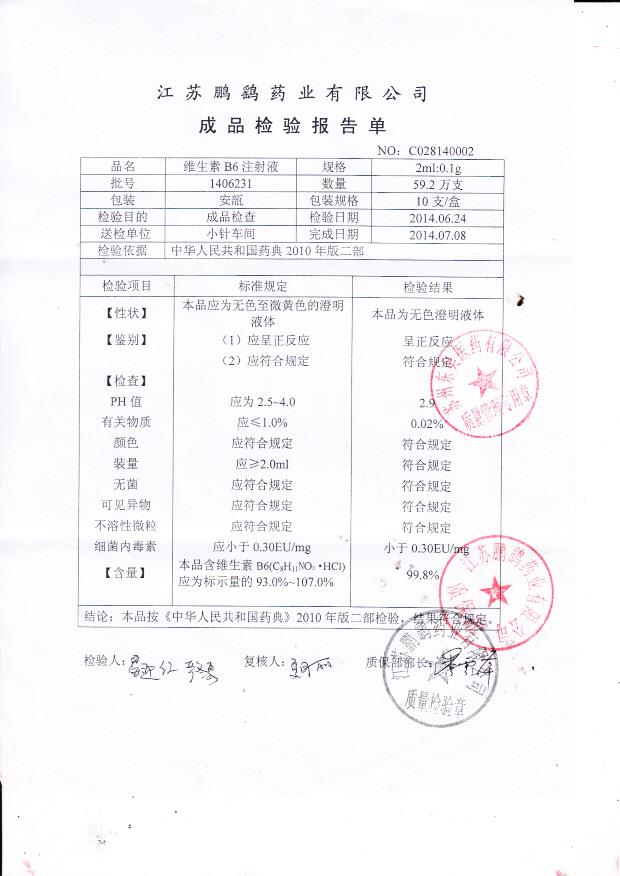 江苏鹏鹞药业有限公司
成品检验报告单
NO：C028140002
品名 维生素 B6 注射液 规格 2ml:0.1g
批号 1406231 数量 59.2 万支
包装 安瓿 包装规格 10 支/盒
检验目的 成品检查 检验日期 2014.06.24
送检单位 小针车间 完成日期 2014.07.08
检验依据 中华人民共和国药典 2010 年版二部
检验项目 标准规定 检验结果
【性状】 本品应为无色至微黄色的澄明 本品为无色澄明液体
液体
【鉴别】 （1）应呈正反应 呈正反应
（2）应符合规定 符合规定
【检查】
PH 值 应为 2.5~4.0 2.9
有关物质 应≤1.0% 0.02%
颜色 应符合规定 符合规定
装量 应≥2.0ml 符合规定
无菌 应符合规定 符合规定
可见异物 应符合规定 符合规定
不溶性微粒 应符合规定 符合规定
细菌内毒素 应小于 0.30EU/mg 小于 0.30EU/mg
【含量】 本品含维生素 B6(C₈H₁₁NO₃·HCl) 99.8%
应为标示量的 93.0%~107.0%
结论：本品按《中华人民共和国药典》2010 年版二部检验，结果符合规定。
检验人： 复核人： 质保部部长：
江苏鹏鹞药业有限公司
江苏鹏鹞药业有限公司
质量检验章